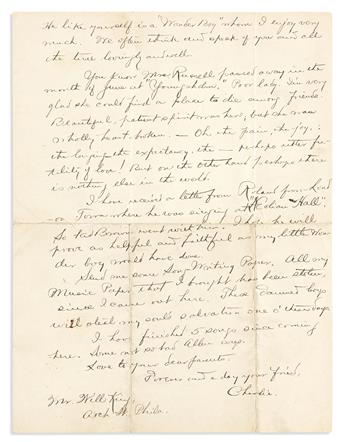 He like yourself is a "Wonder Boy" whom I enjoy very
much. We often think and speak of you and all
the time lovingly and well.
You know Mrs. Russell passed away in the
month of June at "Youngstown". Poor lady. I'm very
glad she could find a place to die among friends.
Beautiful, patient spirit was hers, but she was
wholly heart broken. — Oh the pain, the joy,
the laughter the expectancy, etc — perhaps utter fu-
tility of love! But on the other hand perhaps there
is nothing else in the world.
I have received a letter from Roland from Lond
-on Town where he was singing at "Hall".
So tad Brown went with him. I hope he will
prove as helpful and faithful as my little Won
der boy would have done.
Send me some Song Writing Paper. All my
Music Paper that I bought has been stolen
since I came out here. These damned boys
will steal my soul's salvation one o' these days
I have finished 5 songs since coming
here. Some not so bad Allen says.
Love to your dear parents.
Forever and a day your friend,
Charlie.
Mr. Will King,
Arch St. Phila.